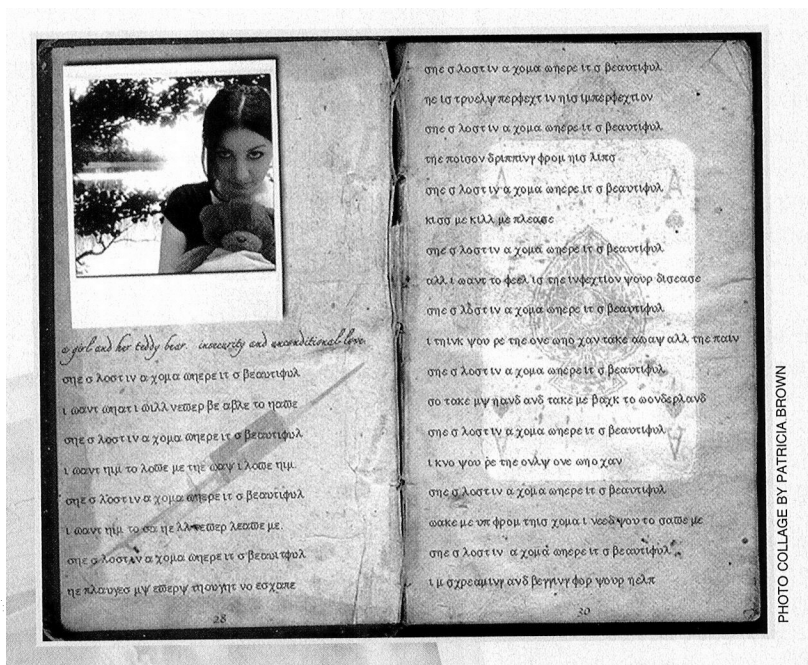 a girl and her teddy bear. insecurity and unconditional love.
σηε σ λοστ ιν α χομα ωηερε ιτ σ βεαυτιφυλ
ι ωαντ ωηατ ι ωιλλ νεϖερ βε αβλε το ηαϖε
σηε σ λοστ ιν α χομα ωηερε ιτ σ βεαυτιφυλ
ι ωαντ ηιμ το λοϖε με τηε ωαψ ι λοϖε ηιμ.
σηε σ λοστ ιν α χομα ωηερε ιτ σ βεαυτιφυλ
ι ωαντ ηιμ το σα ηε λλ νεϖερ λεαϖε με.
σηε σ λοστ ιν α χομα ωηερε ιτ σ βεαυιτφυλ
ηε πλαυγεσ μψ εϖερψ τηουγητ νο εσχαπε
28
σηε σ λοστ ιν α χομα ωηερε ιτ σ βεαυτιφυλ
ηε ισ τρυελψ περφεχτ ιν ηισ ιμπερφεχτιον
σηε σ λοστ ιν α χομα ωηερε ιτ σ βεαυτιφυλ
τηε ποισον δριππινγ φρομ ηισ λιπσ
σηε σ λοστ ιν α χομα ωηερε ιτ σ βεαυτιφυλ
κισσ με κιλλ με πλεασε
σηε σ λοστ ιν α χομα ωηερε ιτ σ βεαυτιφυλ
αλλ ι ωαντ το φεελ ισ τηε ινφεχτιον ψουρ δισεασε
σηε σ λοστ ιν α χομα ωηερε ιτ σ βεαυτιφυλ
ι τηινκ ψου ρε τηε ονε ωηο χαν τακε αωαψ αλλ τηε παιν
σηε σ λοστ ιν α χομα ωηερε ιτ σ βεαυτιφυλ
σο τακε μψ ηανδ ανδ τακε με βαχκ το ωονδερλανδ
σηε σ λοστ ιν α χομα ωηερε ιτ σ βεαυτιφυλ
ι κνο ψου ρε τηε ονλψ ονε ωηο χαν
σηε σ λοστ ιν α χομα ωηερε ιτ σ βεαυτιφυλ
ωακε με υπ φρομ τηισ χομα ι νεεδ ψου το σαϖε με
σηε σ λοστ ιν α χομα ωηερε ιτ σ βεαυτιφυλ
ι μ σχρεαμινγ ανδ βεγγινγ φορ ψουρ ηελπ
30
A
A
A
PHOTO COLLAGE BY PATRICIA BROWN